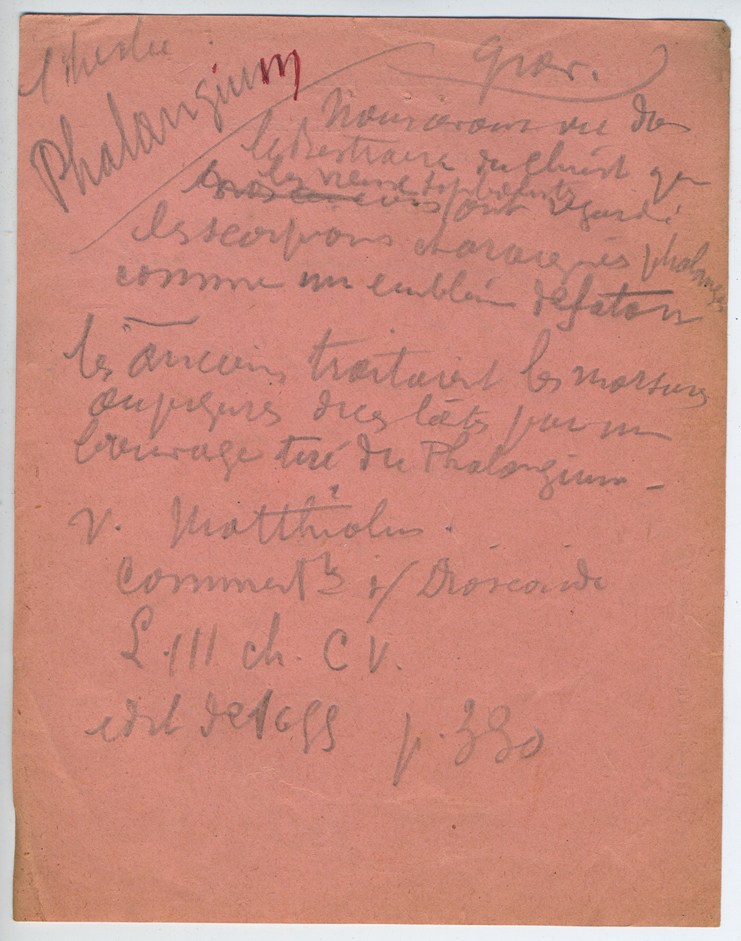 Phalangium
grav.
Nous avons vu dans
le Bestiaire du Christ que
les vieux symbolistes
ont regardé
les scorpions et araignées phalanges
comme un emblème de Satan
les anciens traitaient les morsures
ou piqures par un
breuvage tiré du Phalangium -
V. Matthiolus.
Comment^re s/ Dioscoride
L. III ch. CV.
edit de 1655 p. 330